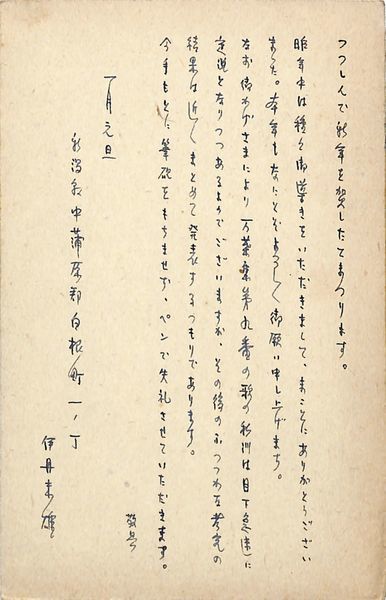 つつしんで新年を賀したてまつります。
昨年中は種々御導きをいただきまして、まことにありがとうござい
ました。本年もなにとぞよろしく御願い申し上げます。
なお御かげさまにより万葉集第九番の歌の新訓は目下急速に
定説となりつつあるようでございますが、その後のふつつかな考究の
結果は近くまとめて発表するつもりであります。
今手もとに筆硯をもちませず、ペンで失礼させていただきます。
敬具
一月元旦
新潟県中蒲原郡白根町一ノ丁
伊丹末雄